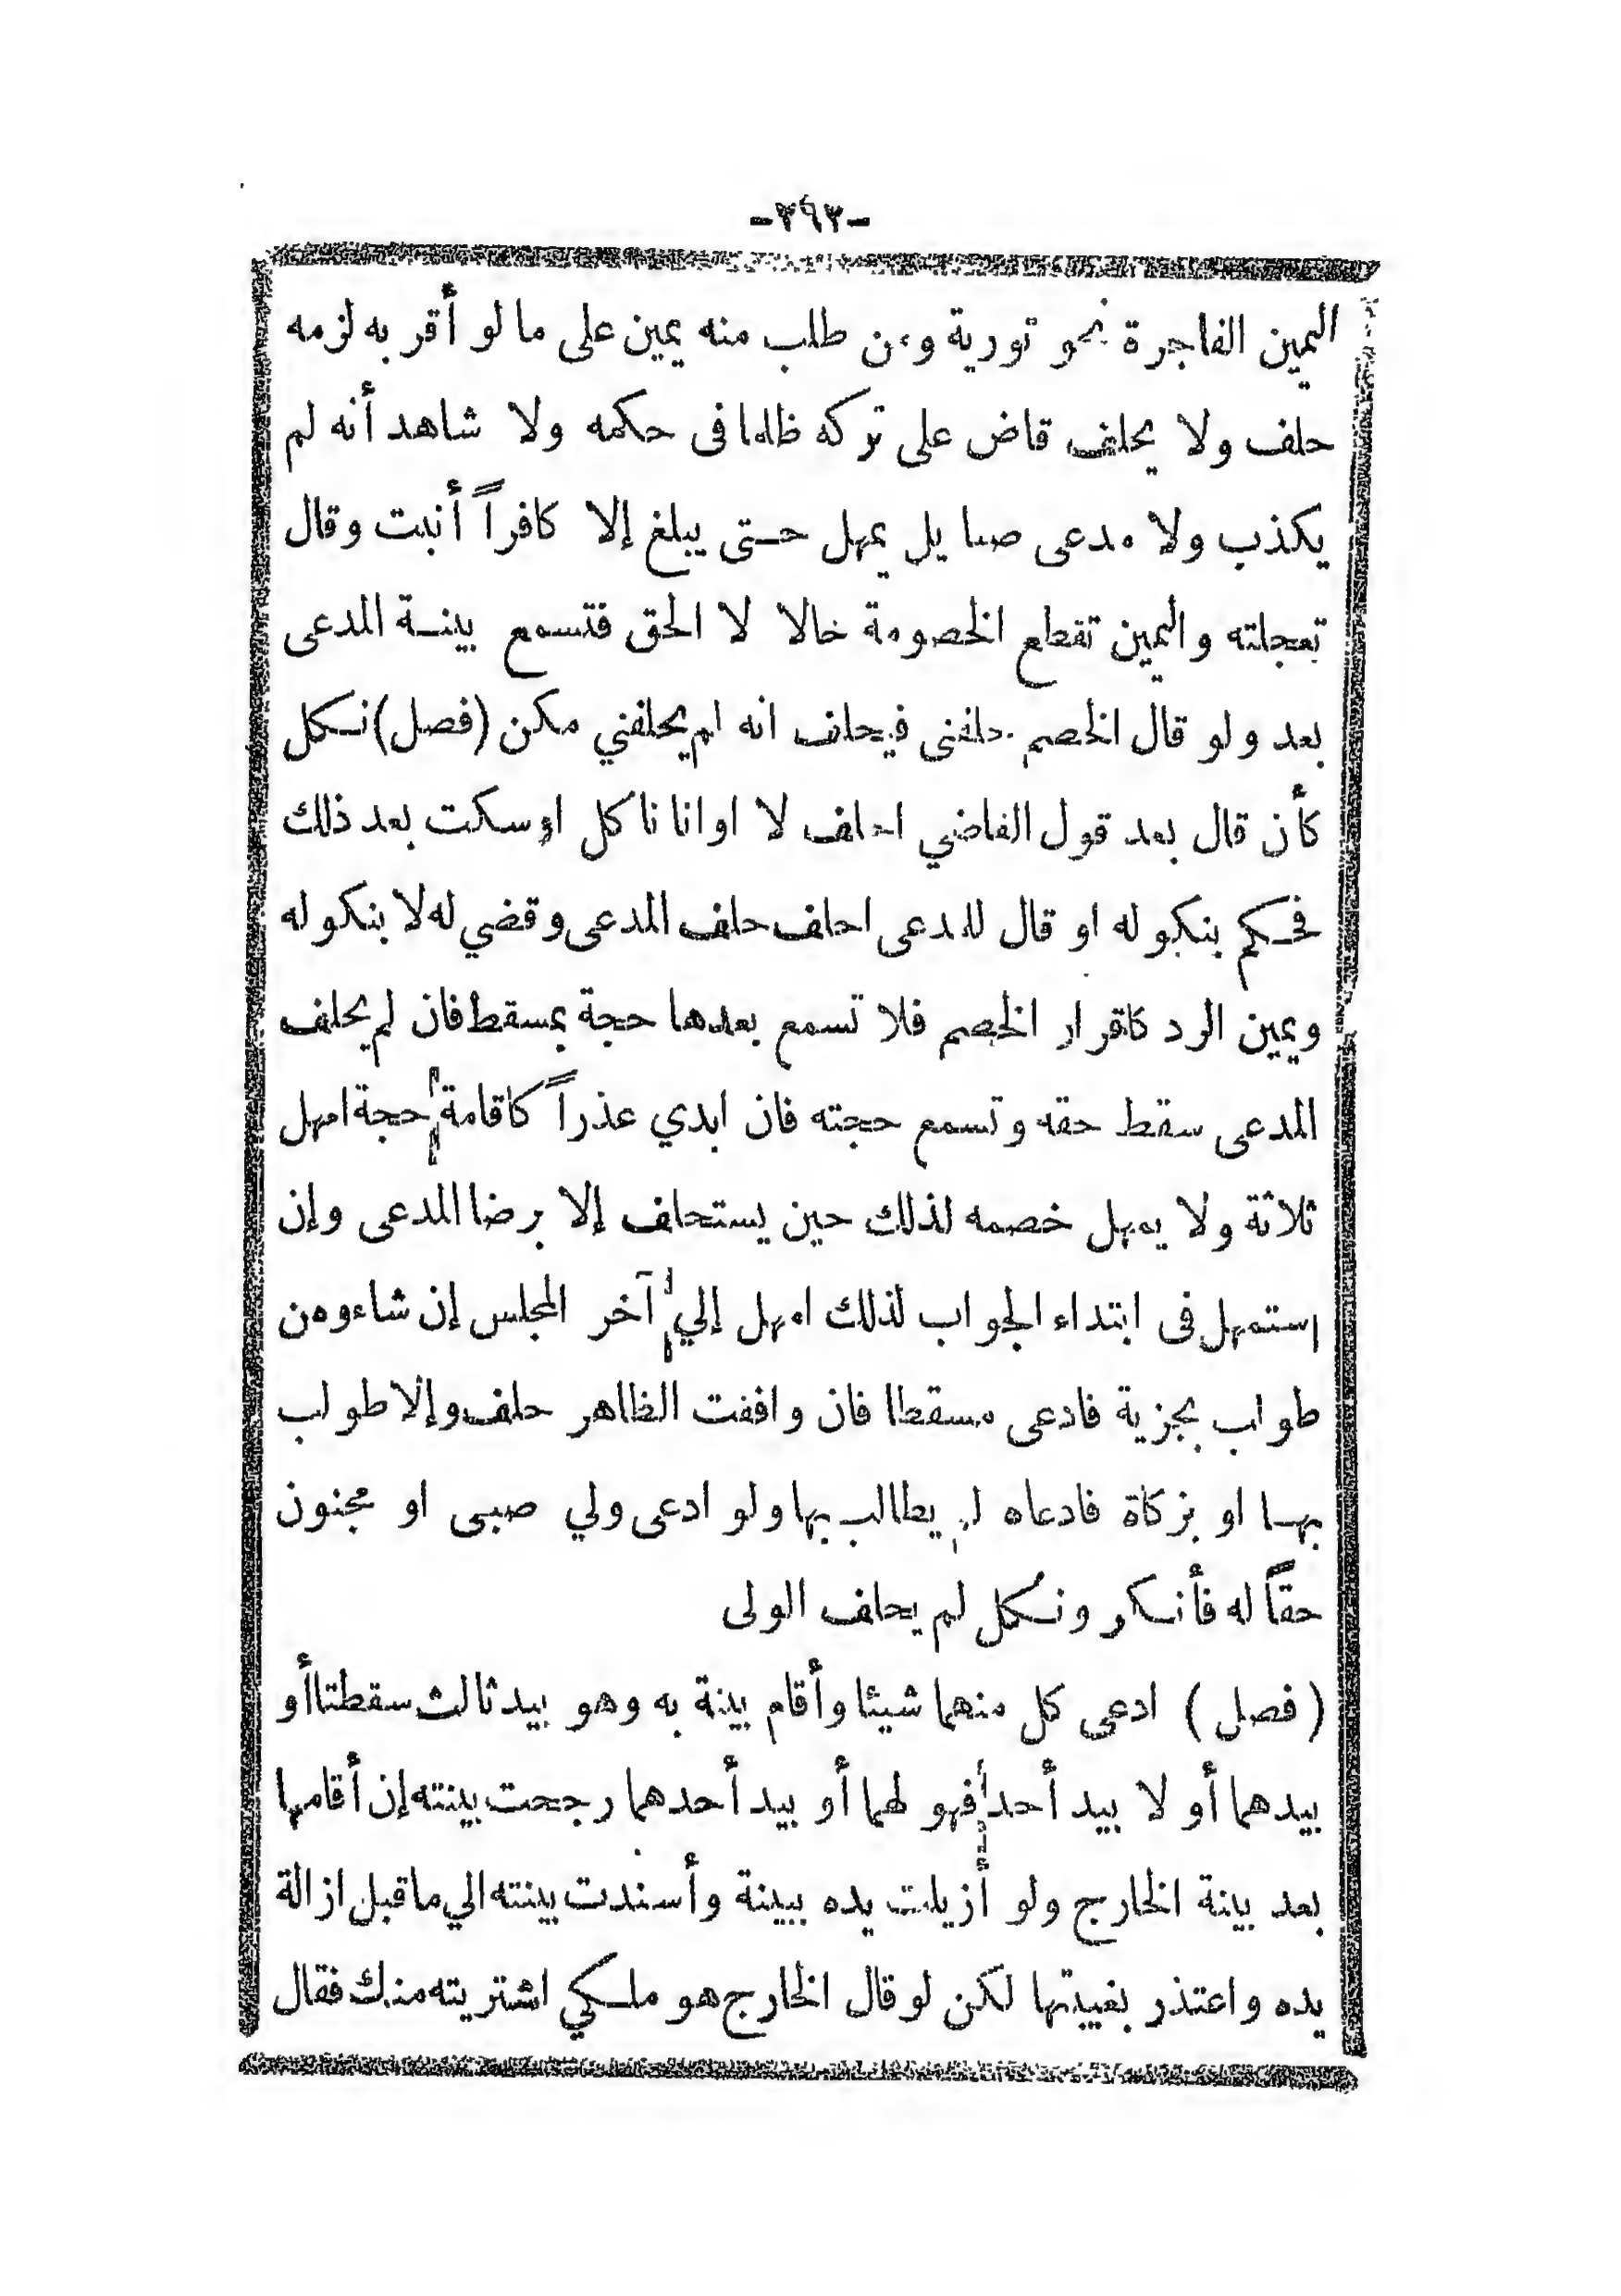 -٣٩٣-
اليمين الفاجرة نحو تورية ومن طلب منه يمين على ما لو أقر به لزمه
حلف ولا يحلف قاض على تركه ظلما فى حكمه ولا شاهد أنه لم
يكذب ولا مدعى صبا بل يمهل حتى يبلغ إلا كافراً أنبت وقال
تعجلته واليمين تقطع الخصومة خالا لا الحق فتسمع بينة المدعى
بعد ولو قال الخصم حلفنى فيحلف انه لم يحلفني مكن (فصل) نكل
كأن قال بعد قول القاضي احلف لا او انا ناكل او سكت بعد ذلك
فحكم بنكوله او قال للمدعى احلف حلف المدعى وقضي له لا بنكوله
ويمين الرد كاقرار الخصم فلا تسمع بعدها حجة بمسقط فان لم يحلف
المدعى سقط حقه وتسمع حجته فان ابدي عذراً كاقامة حجة امهل
ثلاثة ولا يمهل خصمه لذلك حين يستحلف إلا برضا المدعى وإن
استمهل فى ابتداء الجواب لذلك امهل إلي آخر المجلس إن شاء ومن
طولب بجزية فادعى مسقطا فان وافقت الظاهر حلف وإلا طولب
بها او بزكاة فادعاه لم يطالب بها ولو ادعى ولي صبى او مجنون
حقاً له فأنكر ونكل لم يحلف الولى
(فصل) ادعى كل منهما شيئا وأقام بينة به وهو بيد ثالث سقطتا أو
بيدهما أو لا بيد أحد فهو لهما أو بيد أحدهما رجحت بينته إن أقامها
بعد بينة الخارج ولو أزيلت يده ببينة وأسندت بينته الي ما قبل ازالة
يده واعتذر بغيبتها لكن لو قال الخارج هو ملكي اشتريته منك فقال